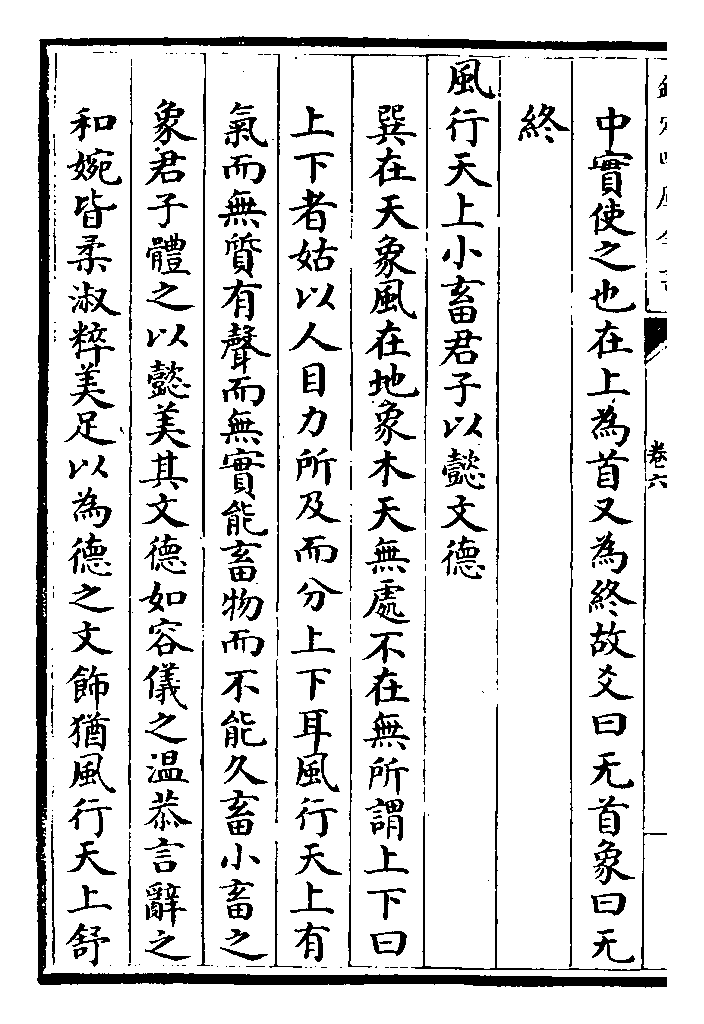 中實使之也在上為首又為終故爻曰无首象曰无
終
風行天上小畜君子以懿文德
巽在天象風在地象木天無處不在無所謂上下曰
上下者姑以人目力所及而分上下耳風行天上有
氣而無質有聲而無實能畜物而不能久畜小畜之
象君子體之以懿美其文德如容儀之温恭言辭之
和婉皆柔淑粹美足以為德之文飾猶風行天上舒
卷六